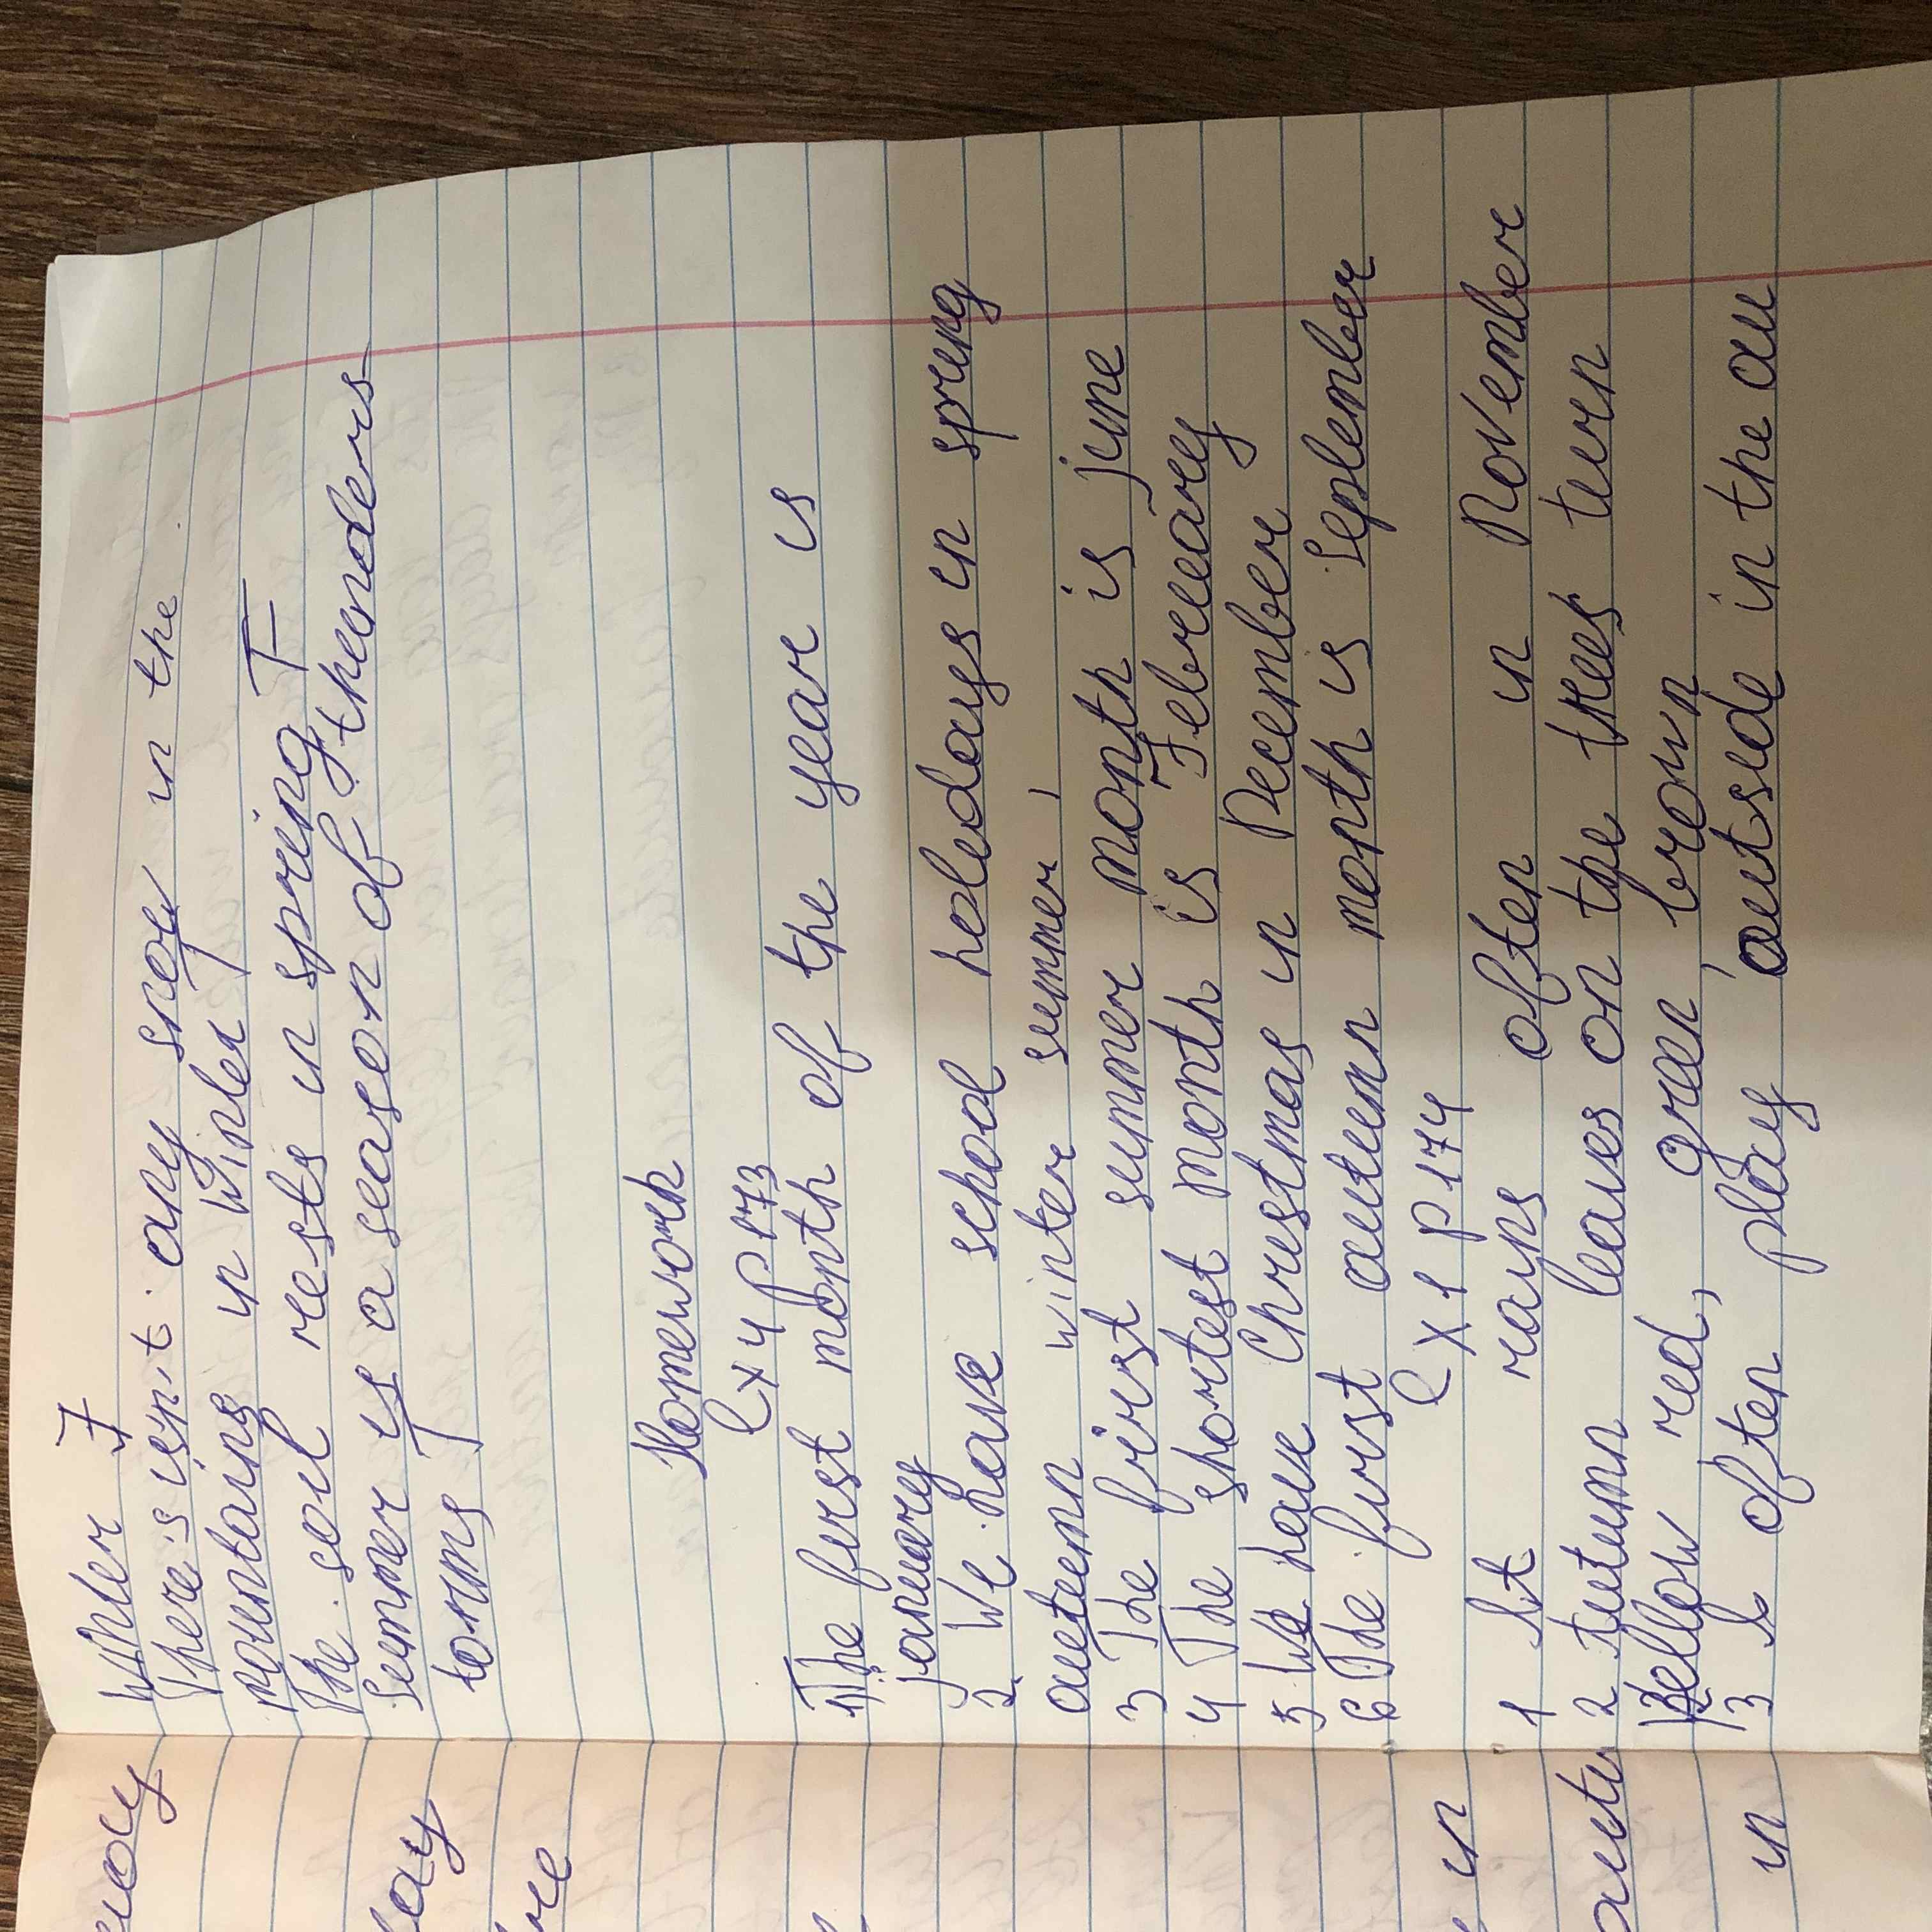 winter F
There's isn't any snow in the
mountains in winter T
The soil rests in spring F
Summer is a season of thunders
torms T
Homework
ex 4 p 173
1) The first month of the year is
january
2 We have school holidays in spring
autemn winter summer,
3 The first summer month is june
4 The shortest month is February
5 We have Christmas in December
6 The first autumn month is September
ex 1 p 174
1 It rayns often in November
2 tutumn leaves on the trees turn
yellow red, green, brown
3 I often play outside in the au
day
re
in
in